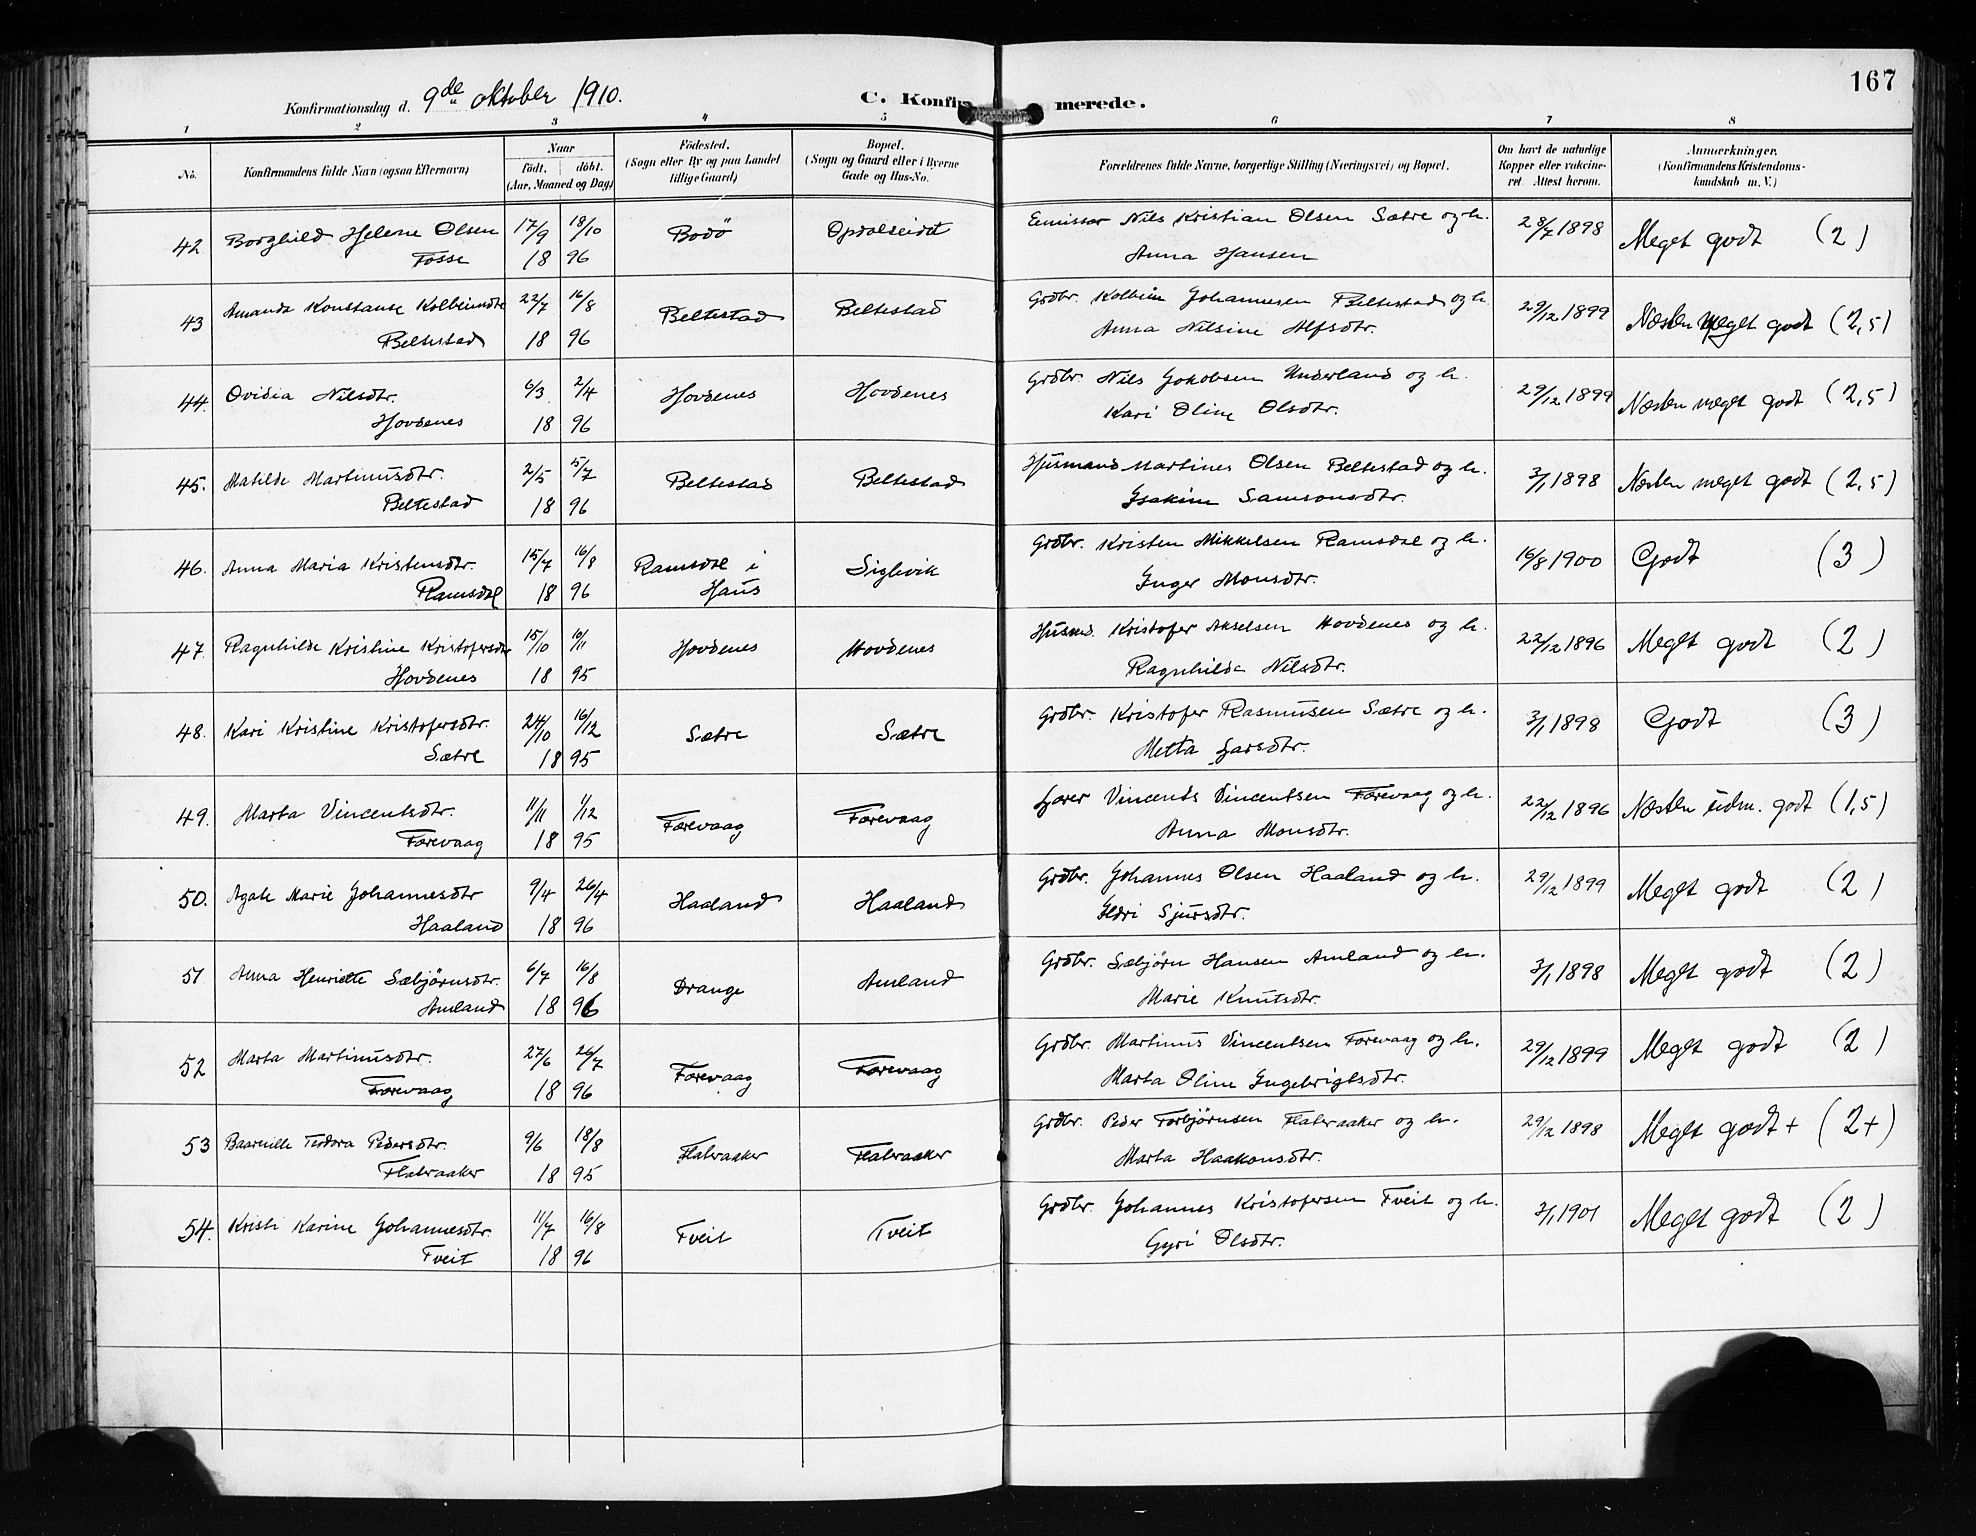 167
Konfirmationsdag d. 9de oktober 1910. C. Konfirmerede.
1 2 3 4 5 6 7 8
No. Konfirmandens fulde Navn (ogsaa Efternavn) Naar født. døbt. (Aar, Maaned og Dag) Fødested. (Sogn eller By og paa Landet tillige Gaard) Bopæl. (Sogn og Gaard eller i Byerne Gade og Hus-No. Forældrenes fulde Navne, borgerlige Stilling (Næringsvei) og Bopæl. Om havt de naturlige Kopper eller vakcineret. Attest herom. Anmærkninger. (Konfirmandens Kristendomskundskab m. V.)
42 Borghild Helene Olsen 17/9 18/10 Bodö Opdalseidet Emissær Nils Kristian Olsen Sætre og h. 28/7 1898 Meget godt (2)
Fosse 18 96 Anna Hansen
43 Amanda Konstanse Kolbeinsdtr 22/7 16/8 Beltestad Beltestad Grdbr. Kolbein Johannesen Beltestad og h. 29/12 1899 Næsten meget godt (2,5)
Beltestad 18 96 Anna Nilsine Alfsdtr.
44. Ovidia Nilsdtr. 6/3 2/4 Hovdenes Hovdenes Grdbr. Nils Jakobsen Underland og h. 29/12 1899 Næsten meget godt (2,5)
Hovdenes 18 96 Kari Oline Olsdtr.
45. Matilde Martinusdtr. 2/5 15/7 Beltestad Beltestad Husmand Martines Olsen Beltestad og h. 3/1 1898 Næsten meget godt (2,5)
Beltestad 18 96 Isakine Samsonsdtr.
46. Anna Maria Kristensdtr. 15/7 16/8 Ramsdal i Haus Siglevik Grdbr. Kristen Mikkelsen Ramsdal og h. 16/8 1900 Godt (3)
Ramsdal 18 96 Inger Monsdtr.
47. Ragnhilde Kristine Kristofersdtr 15/10 10/11 Hovdenes Hovdenes Husmd. Kristofer Akselsen Hovdenes og h. 22/12 1896 Meget godt (2)
Hovdenes 18 95 Ragnhilda Nilsdtr.
48. Kari Kristine Kristofersdtr. 24/10 16/12 Sætre Sætre Grdbr. Kristofer Rasmusen Sætre og h. 3/1 1898 Godt (3)
Sætre 18 95 Metta Larsdtr.
49. Marta Vincentsdtr. 11/11 1/12 Færevaag Færevaag Lærer Vincents Vincentsen Færevaag og h. 22/12 1896 Næsten udm. godt (1,5)
Færevaag 18 95 Anna Monsdtr.
50. Agate Marie Johannesdtr 9/4 26/4 Haaland Haaland Grdbr. Johannes Olsen Haaland og h. 29/12 1899 Meget godt (2)
Haaland 18 96 Ildri Sjursdtr.
51 Anna Henriette Sæbjørnsdtr. 6/7 16/8 Drange Amland Grdbr. Sæbjørn Hansen Amland og h. 3/1 1898 Meget godt (2)
Amland 18 96 Marie Knutsdtr.
52 Marta Martinusdtr. 27/6 26/7 Færevaag Færevaag Grdbr. Martinus Vincentsen Færevaag og h. 29/12 1899 Meget godt (2)
Færevaag 18 96 Marta Oline Ingebrigtsdtr.
53 Teodora Pedersdtr. 9/6 18/8 Flateraaker Flateraaker Grdbr. Peder Torbjørnsen Flateraaker og h. 29/12 1898 Meget godt + (2+)
Flateraaker 18 95 Marta Haakonsdtr.
54. Kristi Karine Johannesdtr. 11/7 16/8 Tveit Tveit Grdbr. Johannes Kristofersen Tveit og h. 2/1 1901 Meget godt (2)
Tveit 18 96 Gyri Olsdtr.